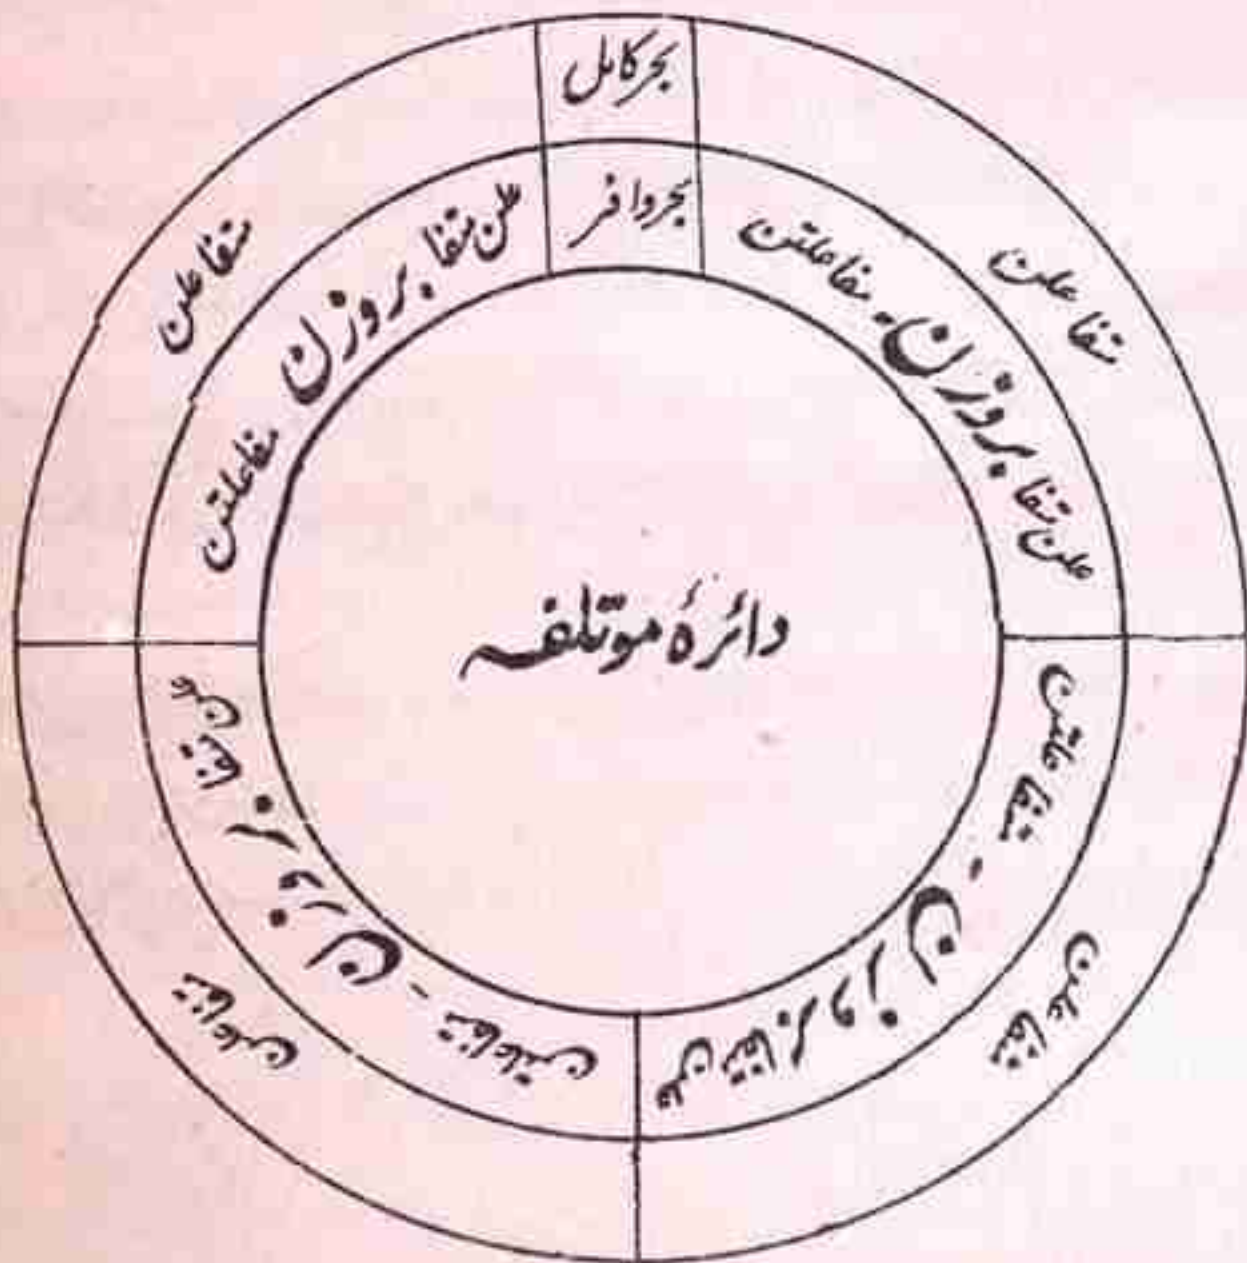 بحر کامل
بحر وافر
متفاعلن
علن متفا بروزن - مفاعلتن
متفاعلن
علن متفا بروزن - متفاعلتن
متفاعلن
علن متفا بروزن - متفاعلتن
متفاعلن
علن متفا بروزن مفاعلتن
دائرۂ موتلفہ